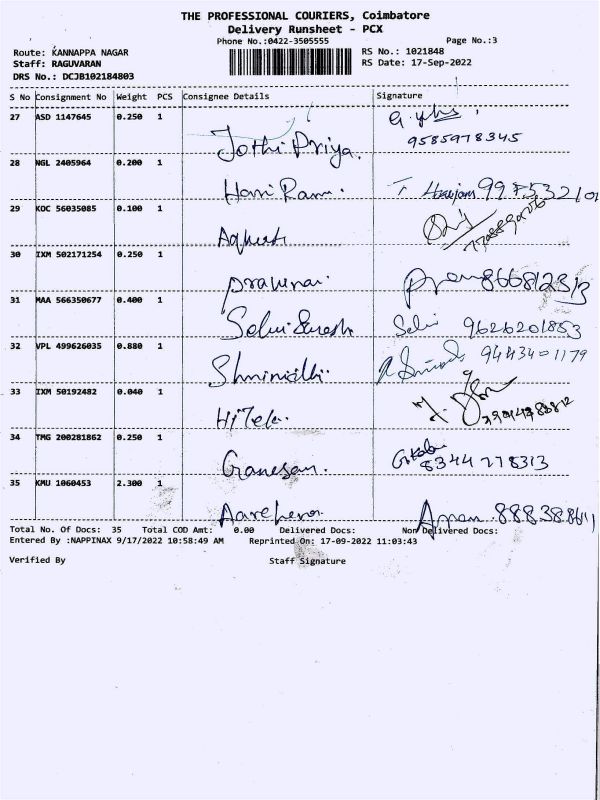 THE PROFESSIONAL COURIERS, Coimbatore
Delivery Runsheet - PCX
Phone No.:0422-3505555 Page No.:3
Route: KANNAPPA NAGAR RS No.: 1021848
Staff: RAGUVARAN RS Date: 17-Sep-2022
DRS No.: DCJB102184803
S No Consignment No Weight PCS Consignee Details Signature
27 ASD 1147645 0.250 1
Jothi Priya. 9585978345
28 NGL 2405964 0.200 1
Hari Ram.
29 KOC 56035085 0.100 1
30 IXM 502171254 0.250 1
31 MAA 566350677 0.400 1
Selvi Suresh Selvi 9626201853
32 VPL 499626035 0.880 1
Shrinidhi. 9443401179
33 IXM 50192482 0.040 1
HiTech.
34 TMG 200281862 0.250 1
Ganesan. 8344278313
35 KMU 1060453 2.300 1
Total No. Of Docs: 35 Total COD Amt: 0.00 Delivered Docs: Non Delivered Docs:
Entered By :NAPPINAX 9/17/2022 10:58:49 AM Reprinted On: 17-09-2022 11:03:43
Verified By Staff Signature